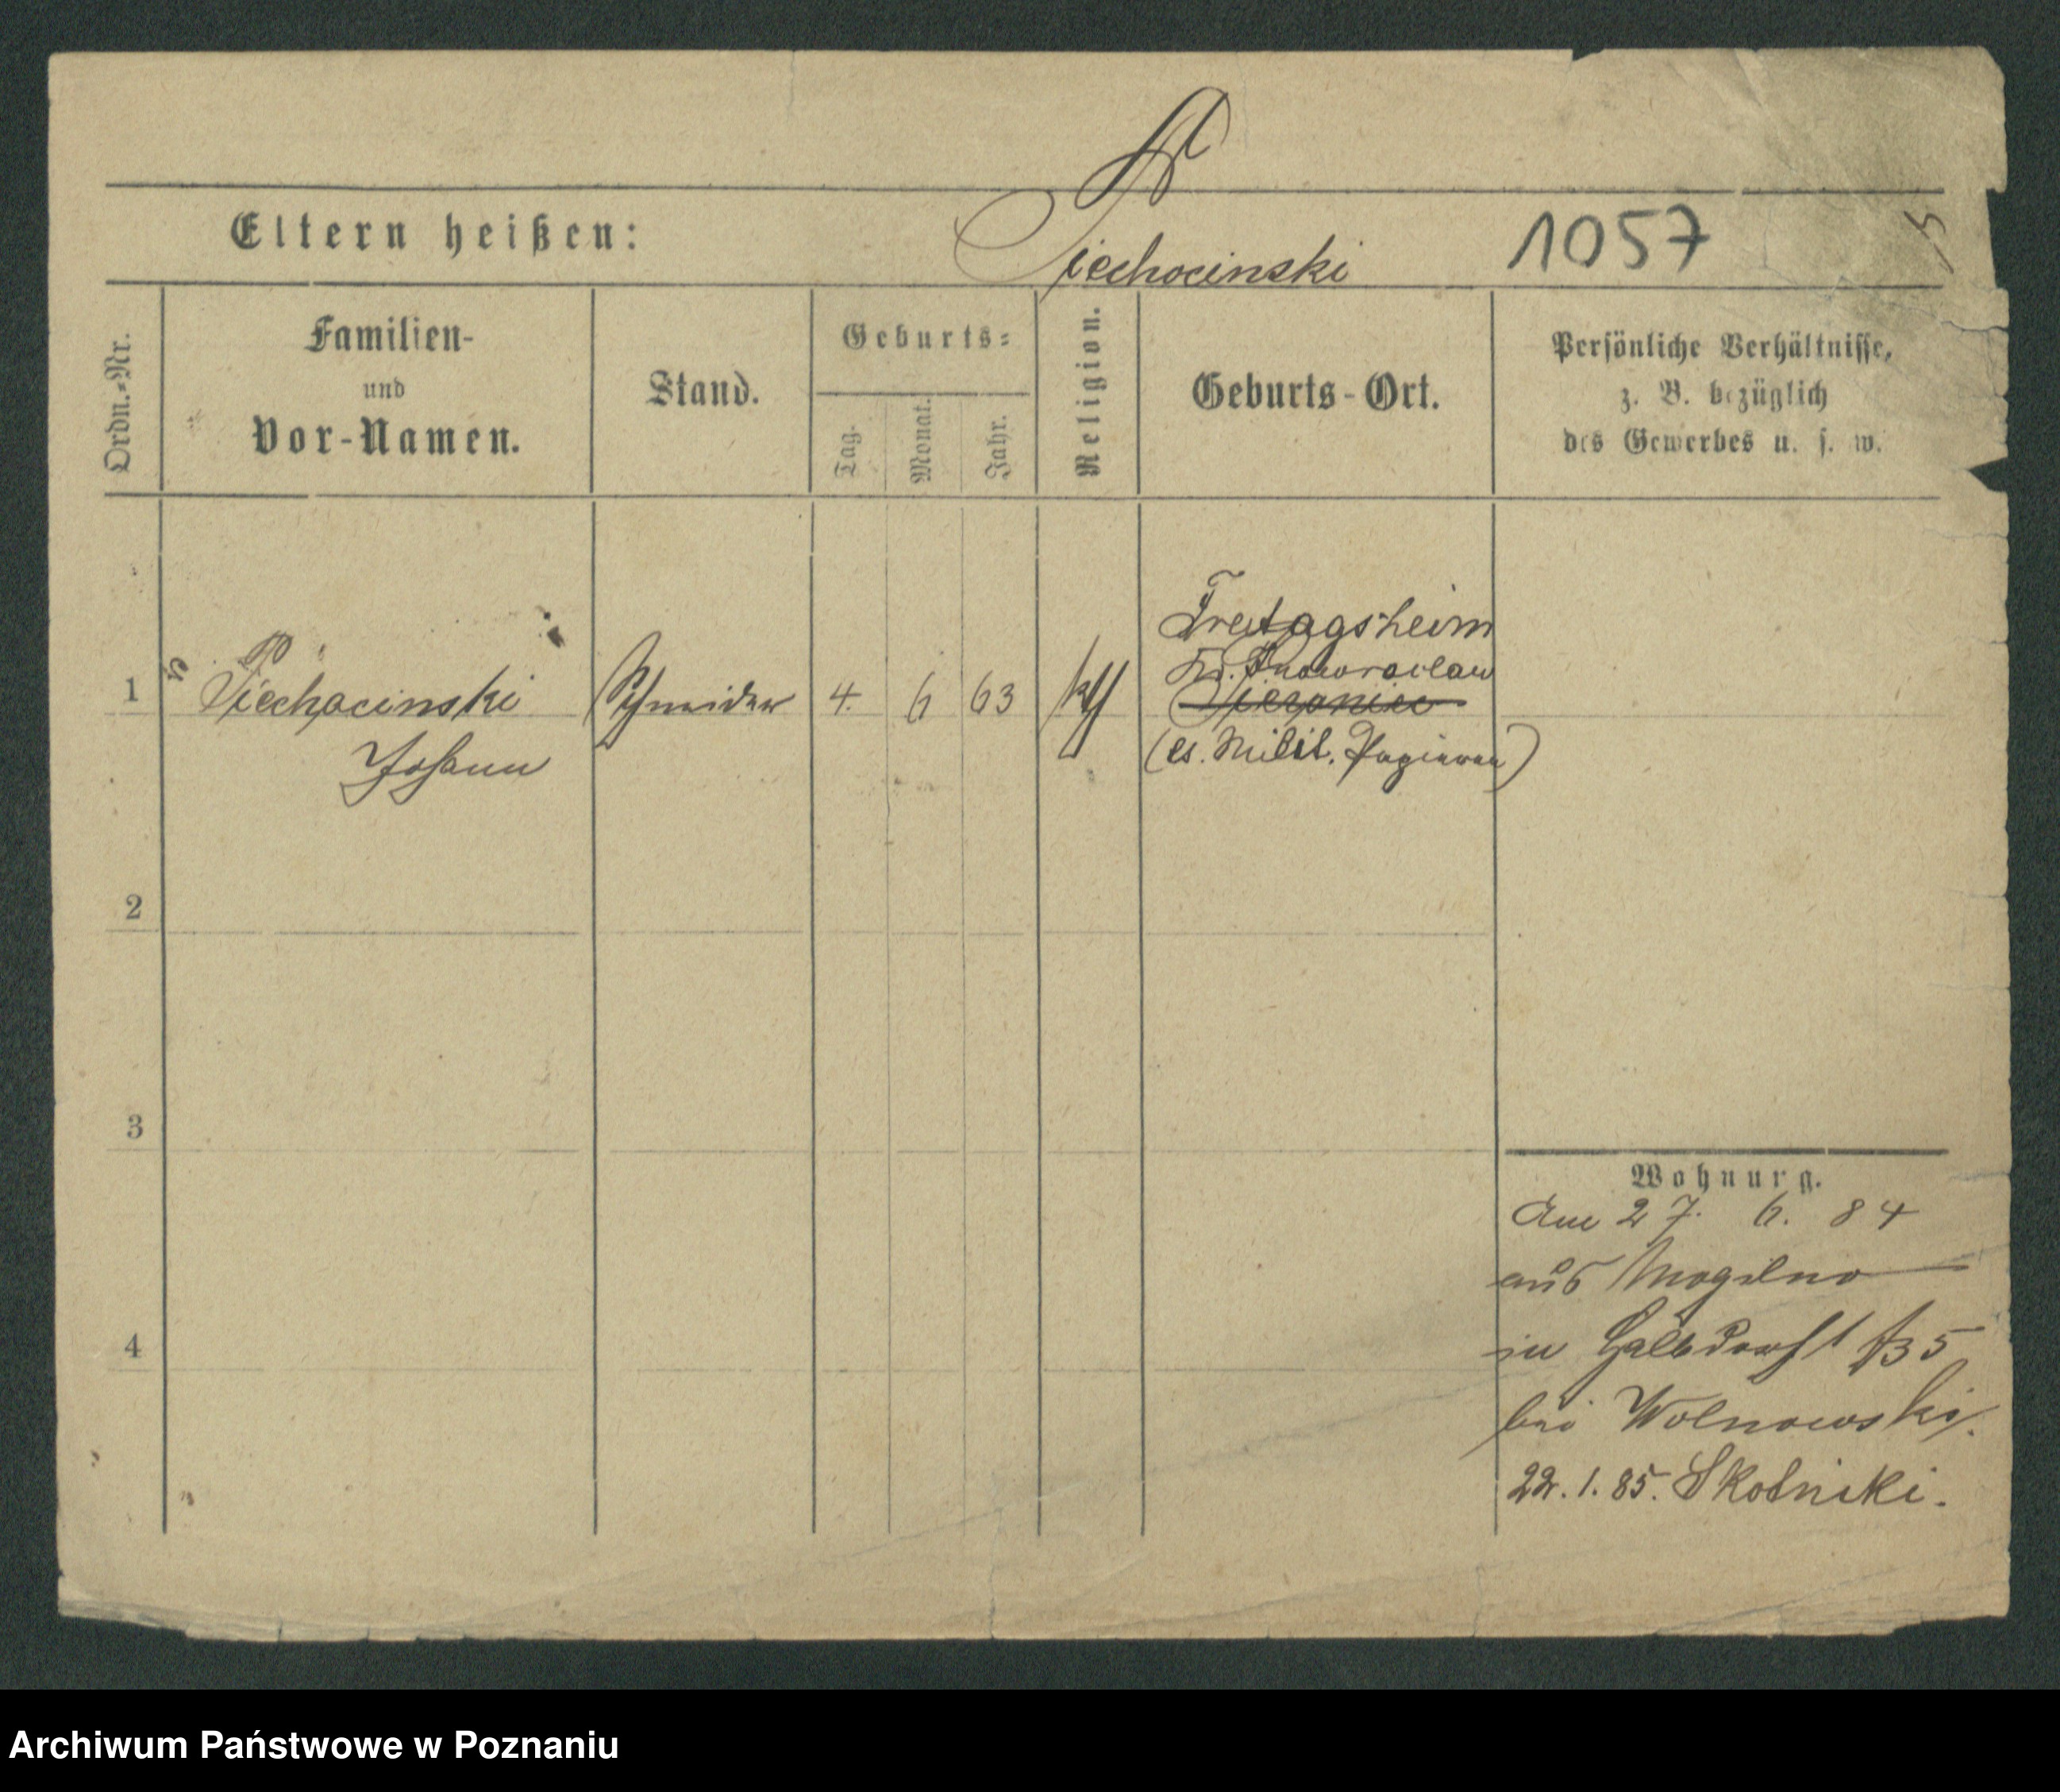 Eltern heißen:
Piechocinski
1057
Ordn.-Nr.
Familien-
und
Vor-Namen.
Stand.
Geburts-
Tag.
Monat.
Jahr.
Religion.
Geburts-Ort.
Persönliche Verhältnisse,
z. B. bezüglich
des Gewerbes u. s. w.
1
Piechocinski
Johann
Schneider
4.
6
63
kth
Freitagsheim
Kr. Inowraclaw
(cs. Milit. Papieren)
2
3
4
Wohnung.
Am 27. 6. 84
aus Mogilno
in Halbdorfst B5
bei Wolnowski.
22. 1. 85. Skotniki.
Archiwum Państwowe w Poznaniu